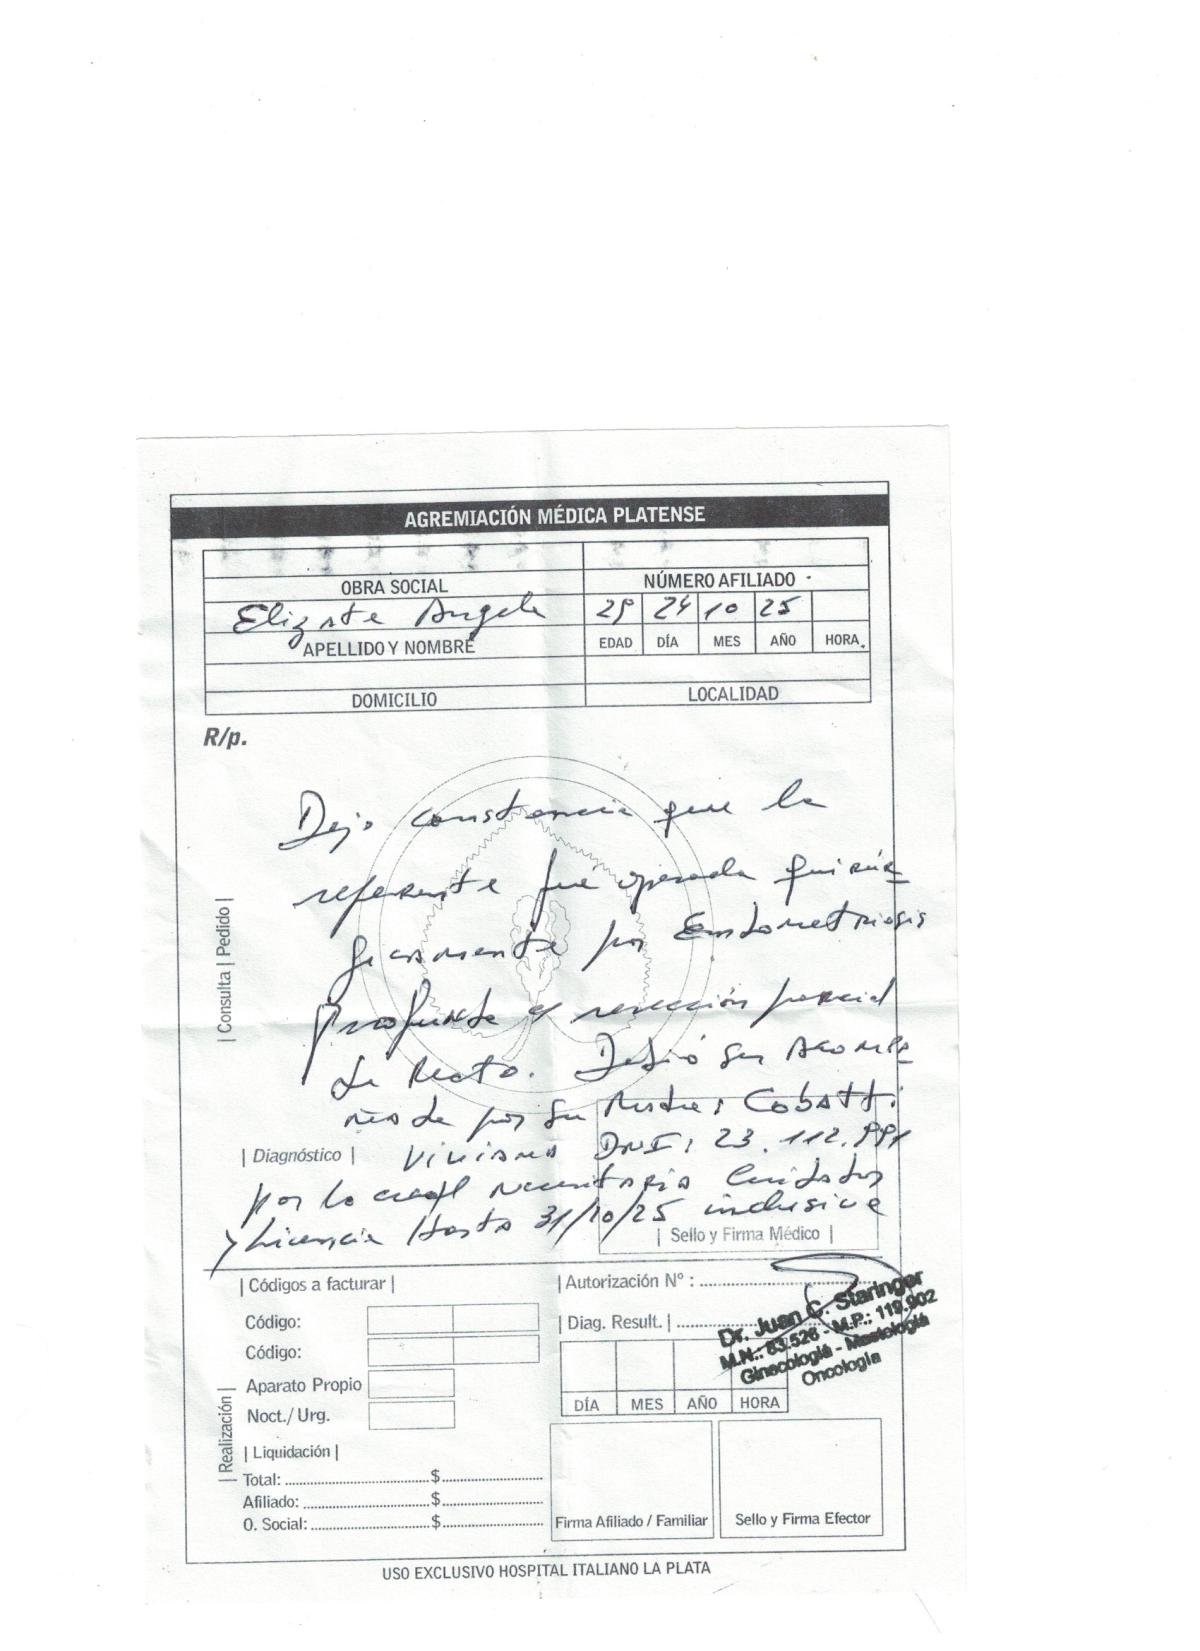 AGREMIACIÓN MÉDICA PLATENSE
OBRA SOCIAL
NÚMERO AFILIADO
Elizate Angela
29 24 10 25
APELLIDO Y NOMBRE
EDAD DÍA MES AÑO HORA
DOMICILIO
LOCALIDAD
R/p.
Dejo constancia que la
referente fué operada quirúr_
gicamente por Endometriosis
profunda c/ resección parcial
de Recto. Debió ser Acompa_
ñada por su Madre: Cobatti
Viviana DNI: 23.112.991
por lo cual necesitaría cuidados
y Licencia Hasta 31/10/25 inclusive
| Consulta | Pedido |
| Diagnóstico |
| Sello y Firma Médico |
| Códigos a facturar |
Código:
Código:
Aparato Propio
Noct./ Urg.
| Realización |
| Liquidación |
Total: $
Afiliado: $
O. Social: $
| Autorización N° :
| Diag. Result. |
Dr. Juan C. Staringer
M.N.: 63.526 - M.P.: 119.902
Ginecología - Mastología
Oncología
DÍA MES AÑO HORA
Firma Afiliado / Familiar
Sello y Firma Efector
USO EXCLUSIVO HOSPITAL ITALIANO LA PLATA